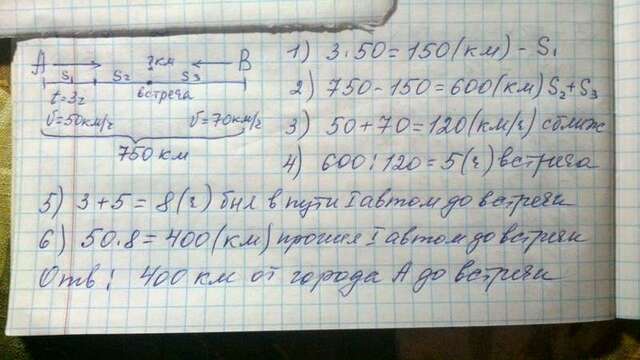 A ? км B
S₁ S₂ S₃
t=3ч встреча
V=50км/ч V=70км/ч
750 км
1) 3·50=150(км) - S₁
2) 750-150=600(км) S₂+S₃
3) 50+70=120(км/ч) сближ
4) 600:120=5(ч) встреча
5) 3+5=8(ч) был в пути I автом до встречи
6) 50·8=400(км) прошел I автом до встречи
Отв: 400 км от города A до встречи